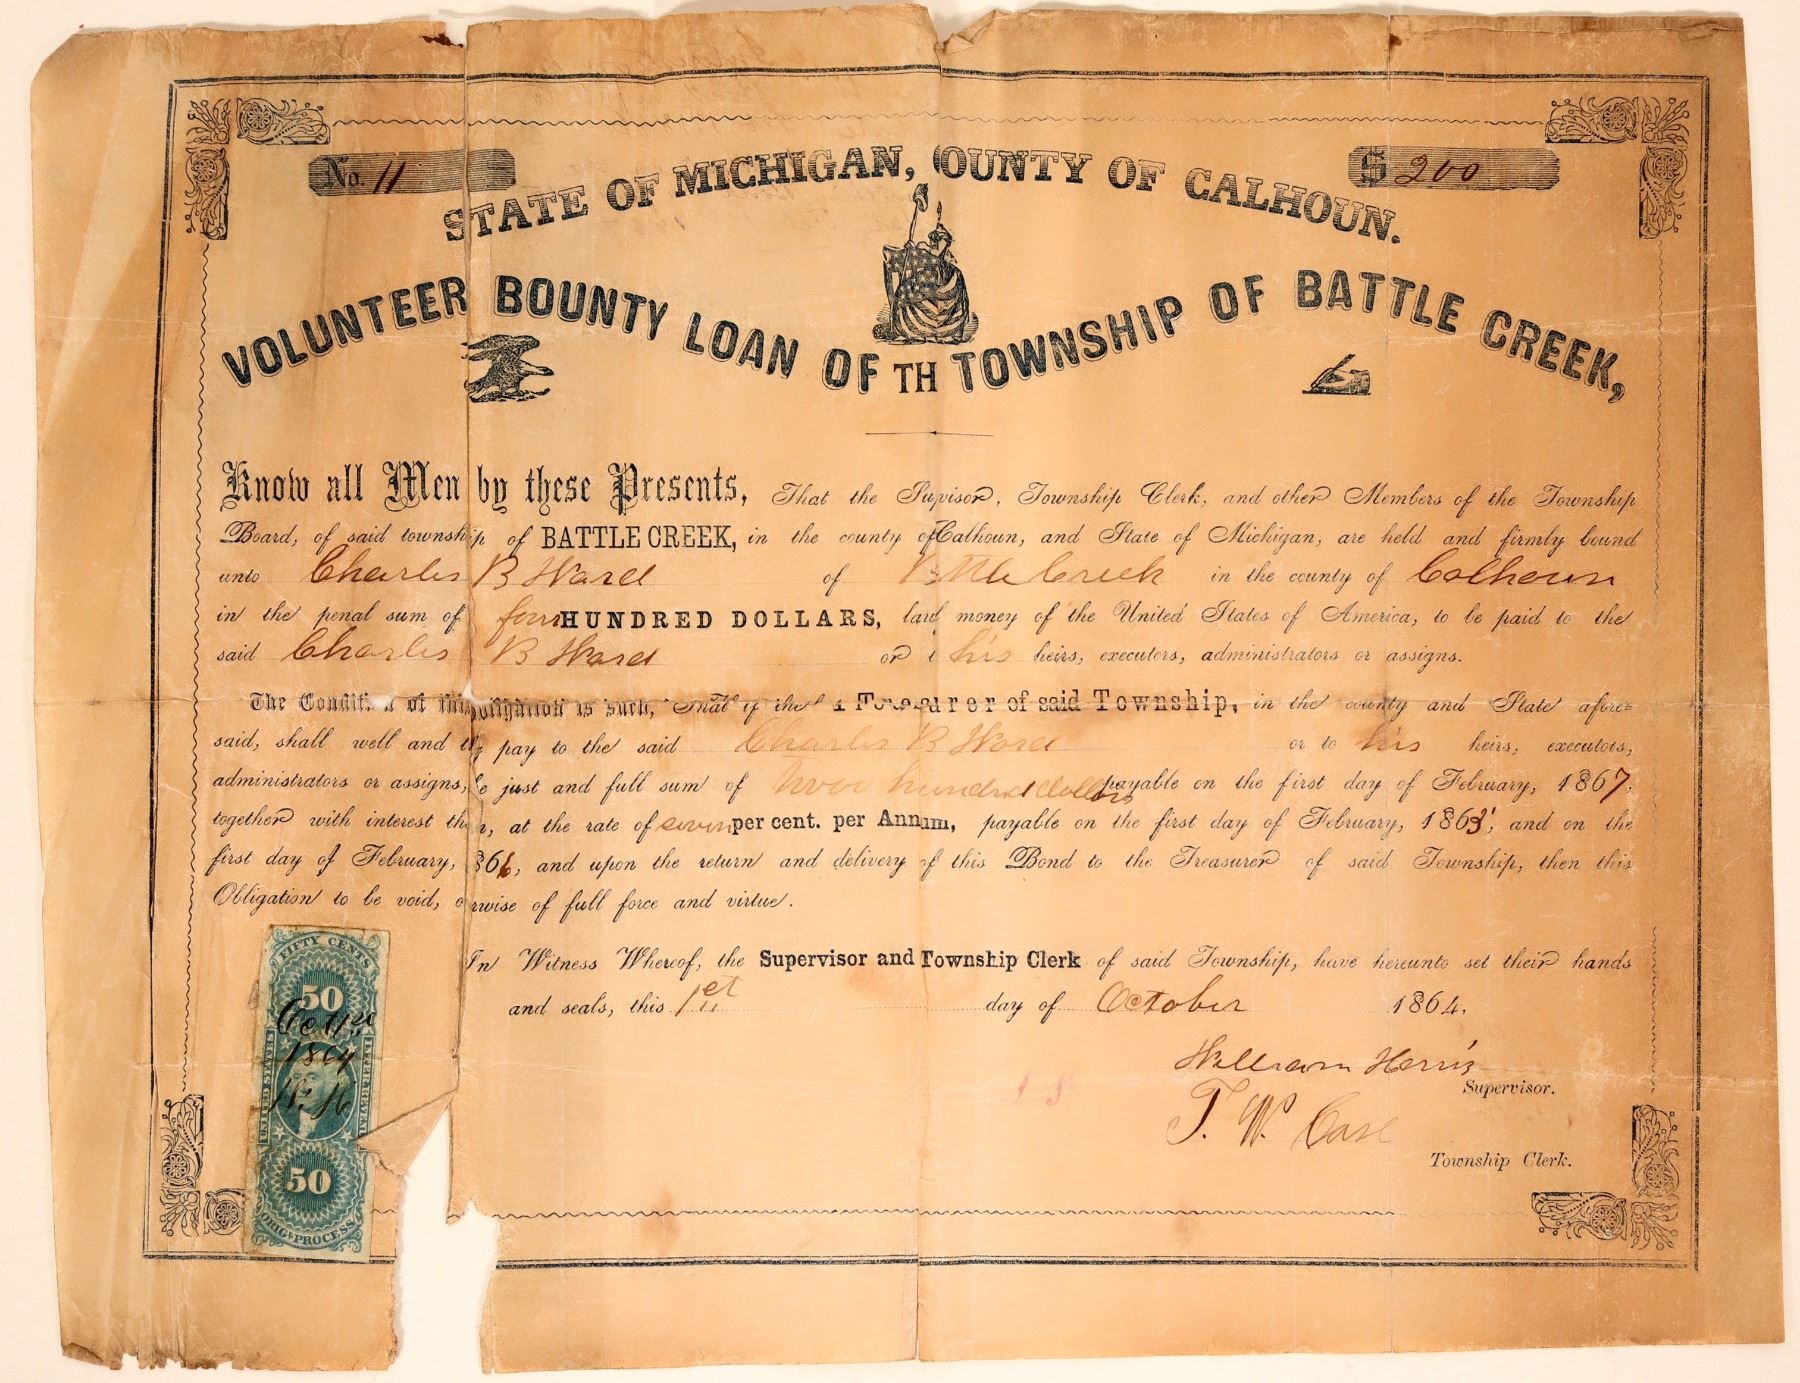 No. 11
$ 200
STATE OF MICHIGAN, OUNTY OF CALHOUN.
VOLUNTEER BOUNTY LOAN OF TH TOWNSHIP OF BATTLE CREEK,
Know all Men by these Presents, That the Supvisor, Township Clerk, and other Members of the Township
Board, of said township of BATTLE CREEK, in the county of Calhoun, and State of Michigan, are held and firmly bound
unto Charles B Ward of Battle Creek in the county of Calhoun
in the penal sum of four HUNDRED DOLLARS, money of the United States of America, to be paid to the
said Charles B Ward or his heirs, executors, administrators or assigns.
The Condition of this obligation is such, That if the Treasurer of said Township, in the county and State afore=
said, shall well and pay to the said Charles B Ward or to his heirs, executors,
administrators or assigns, just and full sum of two hundred dollars payable on the first day of February, 1867,
together with interest at the rate of seven per cent. per Annum, payable on the first day of February, 186 and on the
first day of February, 866, and upon the return and delivery of this Bond to the Treasurer of said Township, then this
Obligation to be void, o rwise of full force and virtue.
In Witness Whereof, the Supervisor and Township Clerk of said Township, have hereunto set their hands
and seals, this 1st day of October 1864.
William Herris
Supervisor.
T. W. Case
Township Clerk.
FIFTY CENTS
50
Oct 1st
1864
W. H
UNITED STATES
INTER. REVENUE
50
ORIG. PROCESS